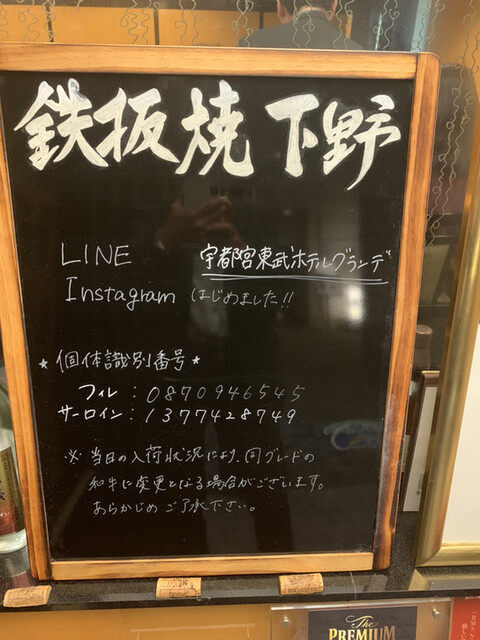 鉄板焼 下野
LINE 宇都宮東武ホテルグランデ
Instagram はじめました!!
★個体識別番号★
フィレ：0870946545
サーロイン：1377428749
※ 当日の入荷状況により、同グレードの
和牛に変更となる場合がございます。
あらかじめご了承下さい。
The
PREMIUM